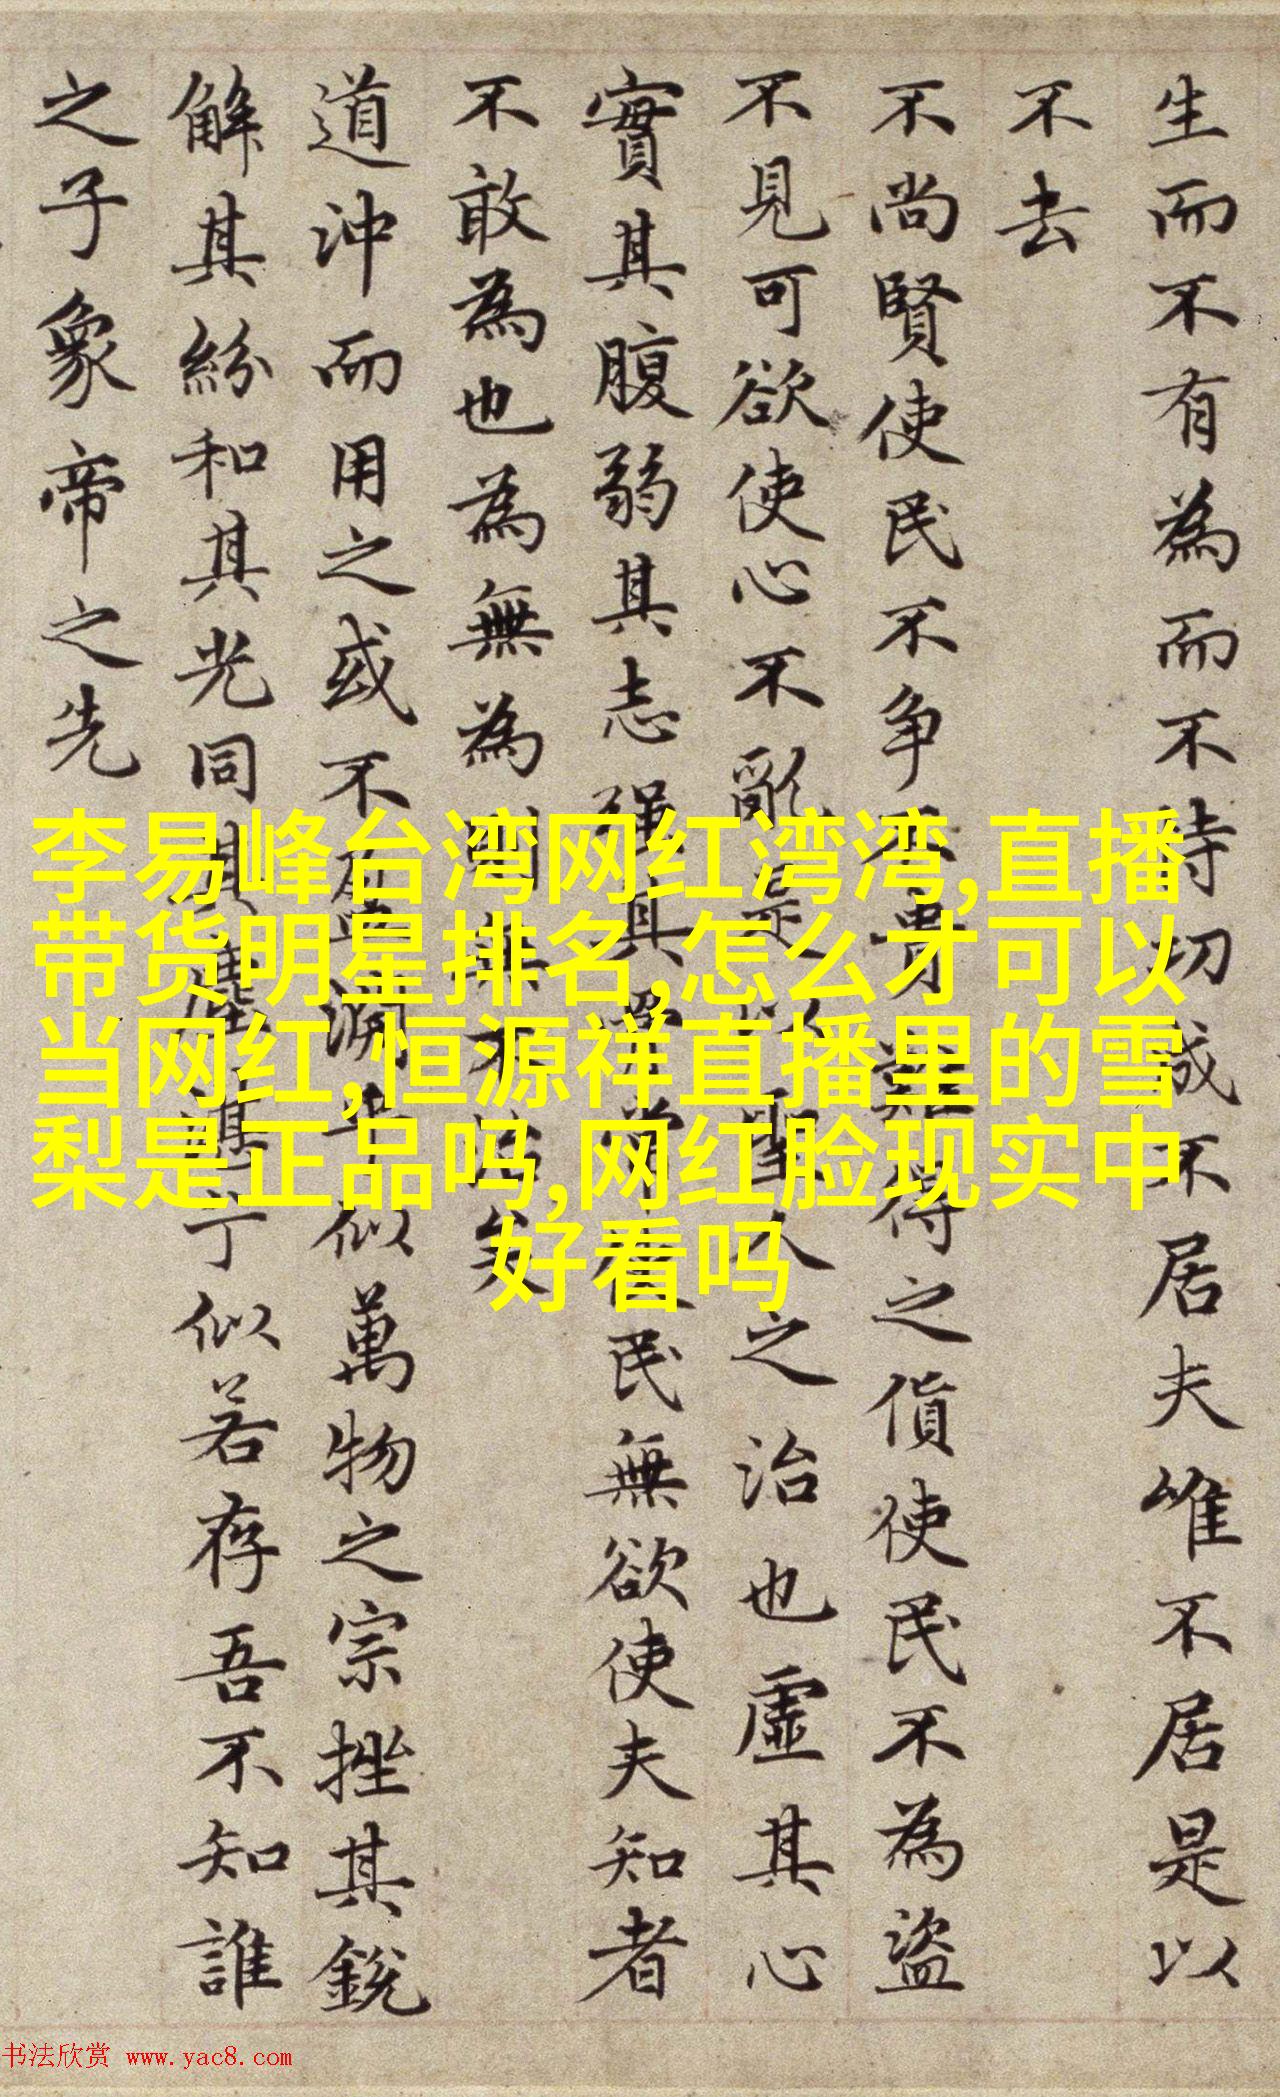 生而不有為而不恃功成不居夫唯不居是以
不去
不尚賢使民不争不貴難得之貨使民不為盜
不見可欲使心不亂是以聖人之治也虛其心
實其腹弱其志强其骨常使民無欲使夫知者
不敢為也為無為則無不治矣
道沖而用之或不盈淵乎似萬物之宗挫其銳
解其紛和其光同其塵湛兮似若存吾不知誰
之子象帝之先
李易峰台湾网红湾湾,直播
带货明星排名,怎么才可以
当网红,恒源祥直播里的雪
梨是正品吗,网红脸现实中
好看吗
书法欣赏 www.yac8.com